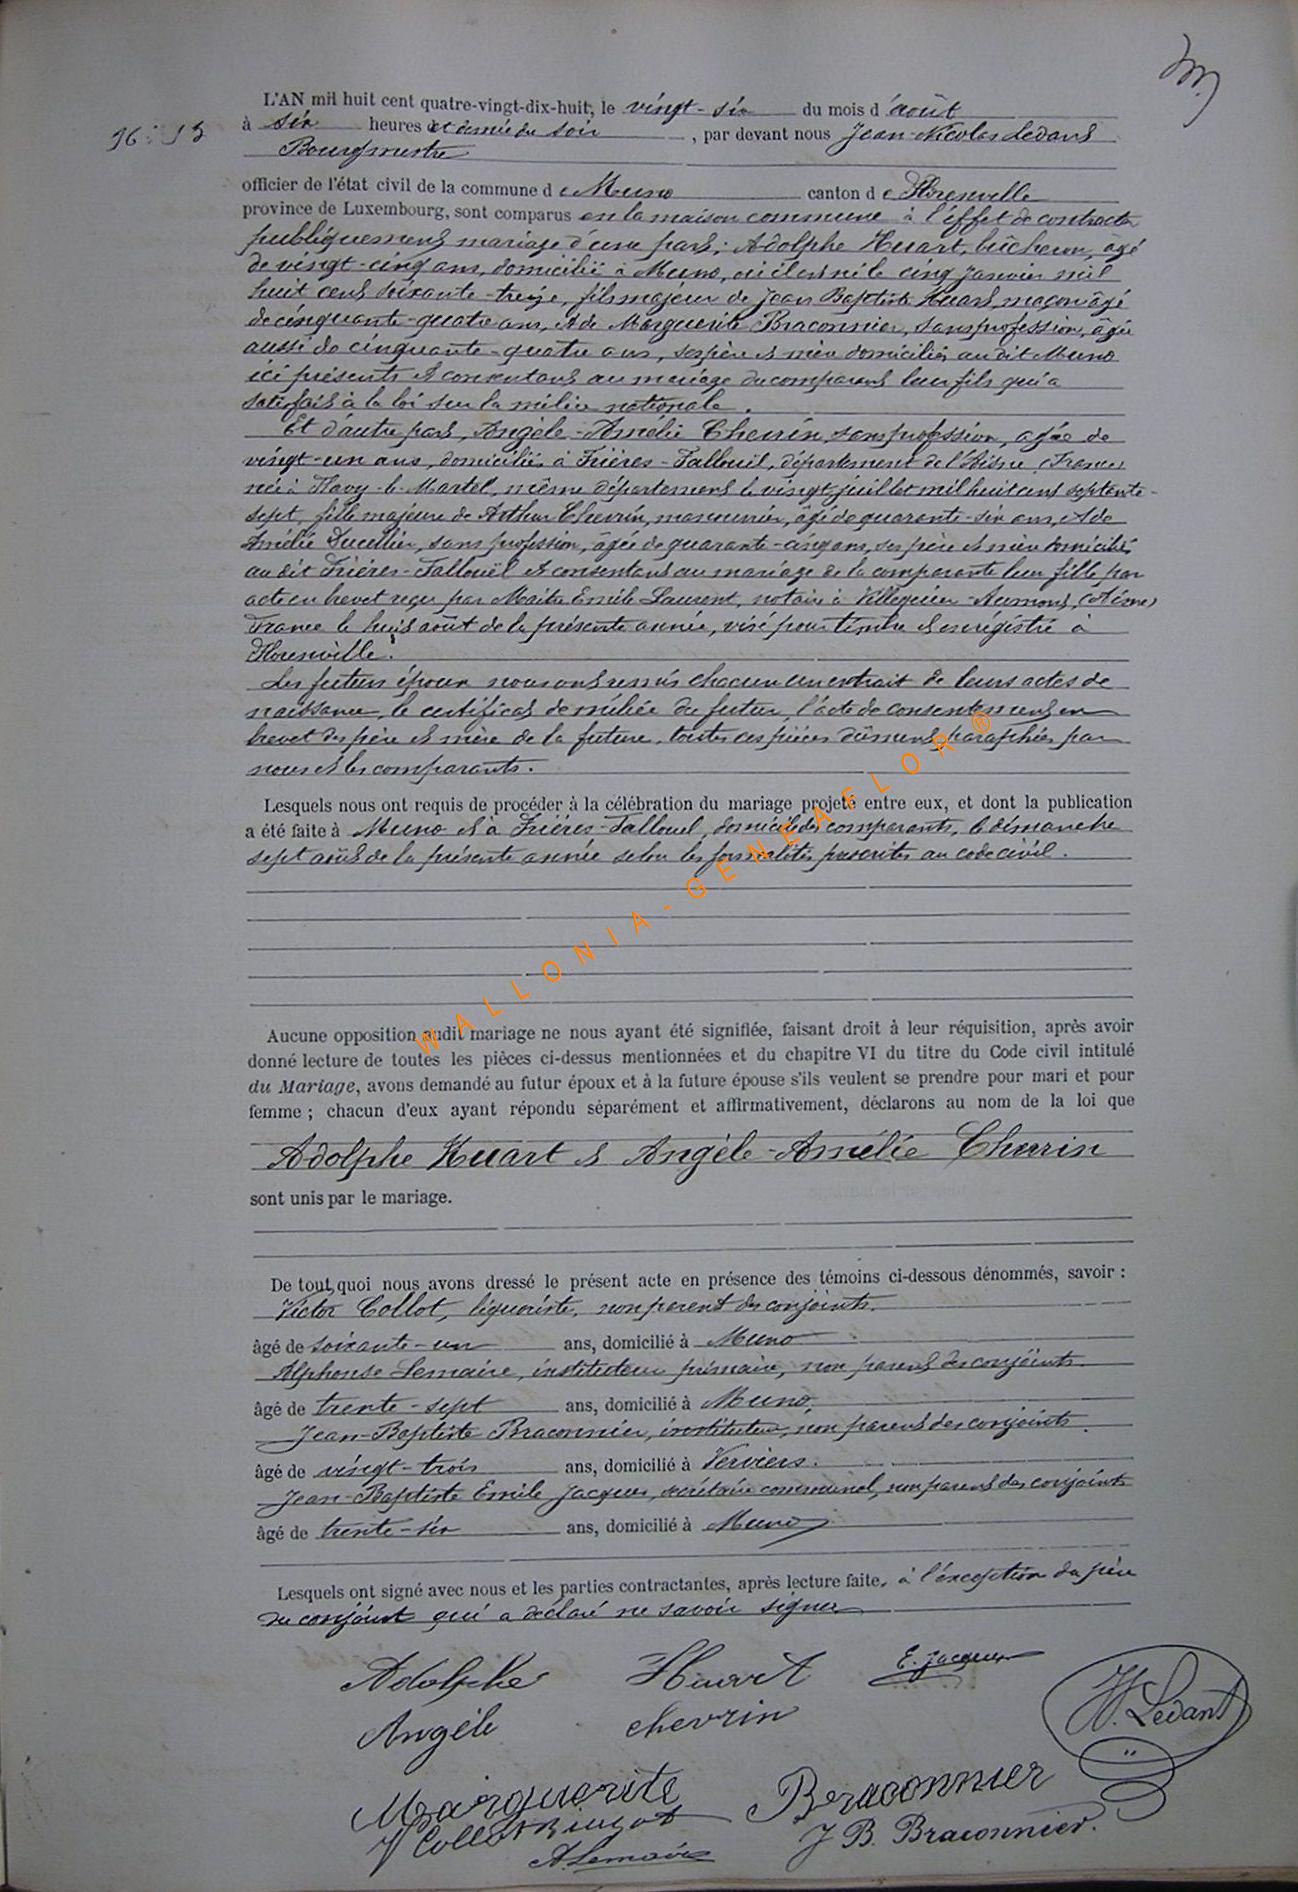 L'AN mil huit cent quatre-vingt-dix-huit, le vingt-six du mois d'août
à six heures et demie du soir, par devant nous Jean-Nicolas Ledant
Bourgmestre
officier de l'état civil de la commune de Muno canton de Florenville
province de Luxembourg, sont comparus en la maison commune à l'effet de contracter
publiquement mariage d'une part; Adolphe Huart, bûcheron, agé
de vingt-cinq ans, domicilié à Muno, où il est né le cinq janvier mil
huit cent soixante-treize, fils majeur de Jean Baptiste Huart, maçon âgé
de cinquante-quatre ans, et de Marguerite Braconnier, sans profession, âgée
aussi de cinquante-quatre ans, ses père et mère domiciliés au dit Muno
ici présents et consentant au mariage du comparant leur fils qui a
satisfait à la loi sur la milice nationale.
Et d'autre part, Angèle-Amélie Chevrin, sans profession, agée de
vingt-un ans, domiciliée à Frières-Faillouël, département de l'Aisne (France
née à Flavy-le-Martel, même département le vingt juillet mil huit cent septante-
sept, fille majeure de Arthur Chevrin, manouvrier, âgé de quarante-six ans, et de
Amélie Ducellier, sans profession, âgée de quarante-cinq ans, ses père et mère domiciliés
au dit Frières-Faillouël et consentant au mariage de la comparante leur fille par
acte en brevet reçu par Maître Emile Laurent, notaire à Villequier-Aumont, (Aisne)
France le huit août de la présente année, visé pour timbre et enregistré à
Florenville.
Les futurs époux nous ont remis chacun un extrait de leurs actes de
naissance, le certificat de milice du futur, l'acte de consentement en
brevet des père et mère de la future, toutes ces pièces dûment paraphées par
nous et les comparants.
Lesquels nous ont requis de procéder à la célébration du mariage projeté entre eux, et dont la publication
a été faite à Muno et à Frières-Faillouël, domicile des comparants, le dimanche
sept août de la présente année selon les formalités prescrites au code civil.
WALLONIA-GENEAFLOR®
Aucune opposition audit mariage ne nous ayant été signifiée, faisant droit à leur réquisition, après avoir
donné lecture de toutes les pièces ci-dessus mentionnées et du chapitre VI du titre du Code civil intitulé
du Mariage, avons demandé au futur époux et à la future épouse s'ils veulent se prendre pour mari et pour
femme ; chacun d'eux ayant répondu séparément et affirmativement, déclarons au nom de la loi que
Adolphe Huart et Angèle-Amélie Chevrin
sont unis par le mariage.
De tout quoi nous avons dressé le présent acte en présence des témoins ci-dessous dénommés, savoir :
Victor Collot, liquoriste, non parent des conjoints.
âgé de soixante-un ans, domicilié à Muno
Alphonse Lemaire, instituteur primaire, non parent des conjoints.
âgé de trente-sept ans, domicilié à Muno,
Jean-Baptiste Braconnier, instituteur, non parent des conjoints.
âgé de vingt-trois ans, domicilié à Verviers.
Jean-Baptiste Emile Jacques, secrétaire communal, non parent des conjoints
âgé de trente-six ans, domicilié à Muno
Lesquels ont signé avec nous et les parties contractantes, après lecture faite, à l'exception du père
du conjoint qui a déclaré ne savoir signer
Adolphe Huart E. Jacques
Angéle chevrin N. Ledant
Marguerite Braconnier
V Collot J B. Braconnier.
A. Lemaire